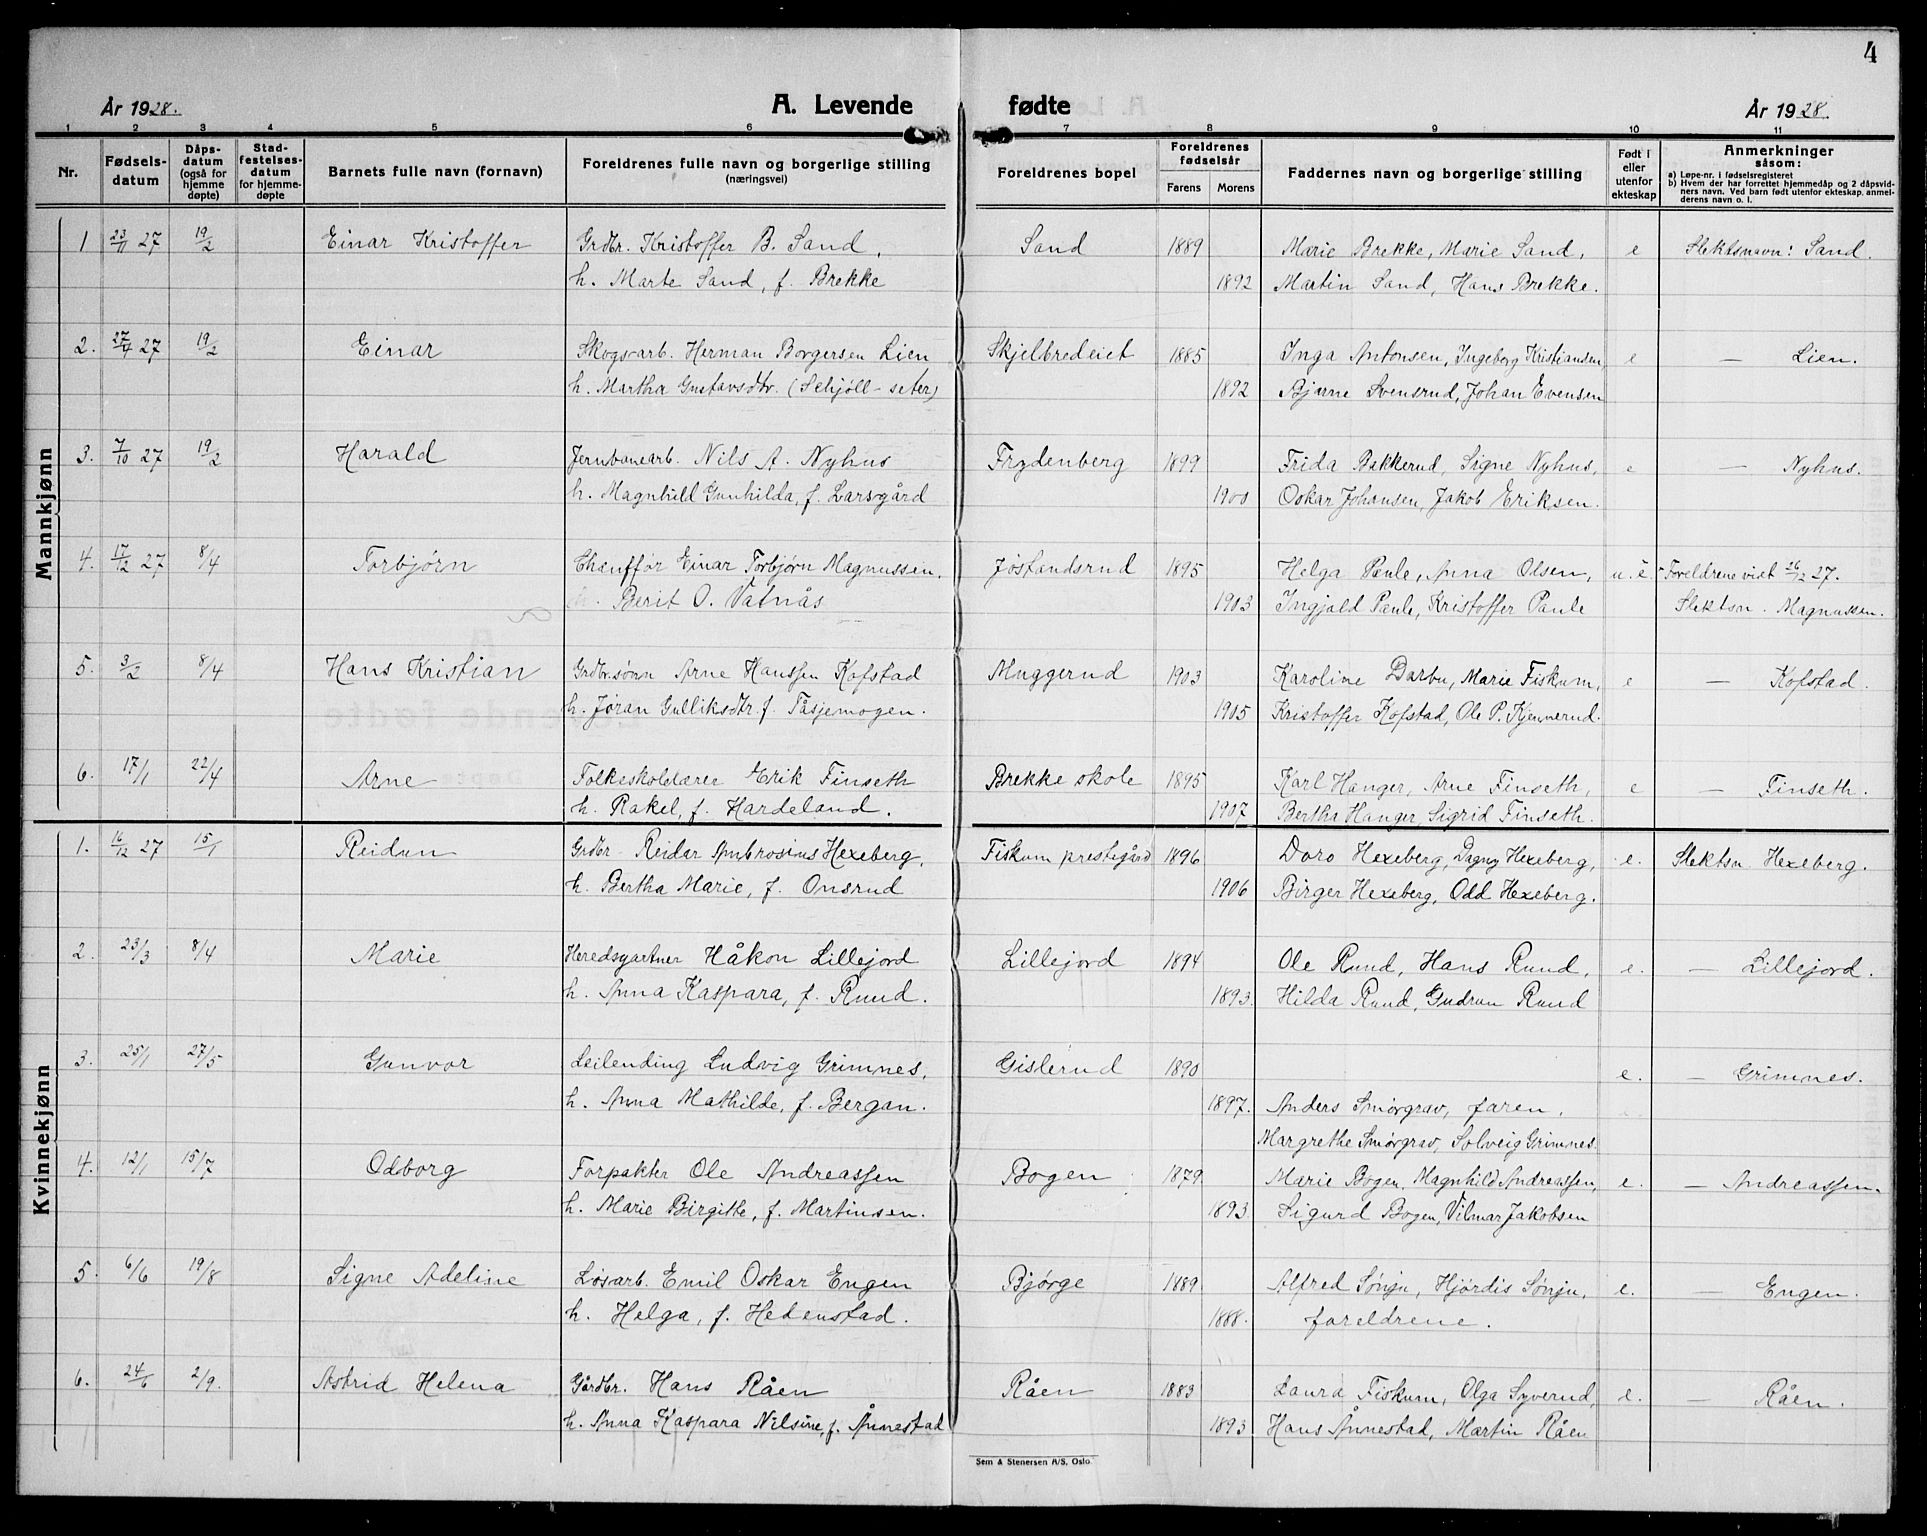 4
År 1928.
A. Levende
fødte
År 1928.
1 2 3 4 5 6 7 8 9 10 11
Nr.
Fødsels-
datum
Dåps-
datum
(også for
hjemme
døpte)
Stad-
festelses-
datum
for hjemme-
døpte
Barnets fulle navn (fornavn)
Foreldrenes fulle navn og borgerlige stilling
(næringsvei)
Foreldrenes bopel
Foreldrenes
fødselsår
Farens Morens
Faddernes navn og borgerlige stilling
Født i
eller
utenfor
ekteskap
Anmerkninger
såsom:
a) Løpe-nr. i fødselsregisteret
b) Hvem der har forrettet hjemmedåp og 2 dåpsvid-
ners navn. Ved barn født utenfor ekteskap, anmel-
derens navn o. l.
Mannkjønn
1 23/11 27 19/2 Einar Kristoffer Grdbr. Kristoffer B. Sand, Sand 1889 Marie Brekke, Marie Sand, e Slektsnavn: Sand.
h. Marte Sand, f. Brekke 1892 Martin Sand, Hans Brekke.
2. 27/4 27 19/2 Einar Skogsarb. Herman Borgersen Lien Skjelbredeiet 1885 Inga Antonsen, Ingeborg Kristiansen, e — Lien.
h. Martha Gustavsdtr. (Schjøll-seter) 1892 Bjarne Svensrud, Johan Evensen
3. 7/10 27 19/2 Harald Jernbanearb. Nils A. Nyhus Frydenberg 1899 Frida Bakkerud, Signe Nyhus, e — Nyhus.
h. Magnhild Gunhilda, f. Larsgård 1900 Oskar Johansen, Jakob Eriksen.
4. 17/12 27 8/4 Torbjørn Chauffør Einar Torbjørn Magnussen. Jøslandsrud 1895 Helga Paule, Anna Olsen, u.e. Foreldrene viet 26/12 27.
Berit O. Vatnås 1903 Ingjald Paule, Kristoffer Paule Slektsn. Magnussen.
5. 3/2 8/4 Hans Kristian Grdbr.sønn Arne Hanssen Kofstad Muggerud 1903 Karoline Darbu, Marie Fiskum, e — Kofstad.
h. Jøran Gulliksdtr. f. Tåsjemogen. 1905 Kristoffer Kofstad, Ole P. Kjennerud.
6. 17/1 22/4 Arne Folkeskolelærer Erik Finseth Brekke skole 1895 Karl Hanger, Arne Finseth, e — Finseth.
h. Rakel, f. Hardeland. 1907 Bertha Hanger, Sigrid Finseth.
Kvinnekjønn
1. 16/12 27 15/1 Reidun Grdbr Reidar Ambrosius Hexeberg, Fiskum prestegård 1896 Doro Hexeberg, Dagny Hexeberg, e. Slektsn. Hexeberg.
h. Bertha Marie, f. Onsrud 1906 Birger Hexeberg, Odd Hexeberg.
2. 23/3 8/4 Marie Heredsgartner Håkon Lillejord Lillejord 1894 Ole Ruud, Hans Ruud, e. — Lillejord.
h. Anna Kaspara, f. Ruud. 1893. Hilda Ruud, Gudrun Ruud
3. 25/1 27/5 Gunvor Leilending Ludvig Grimnes, Gislerud 1890 e. — Grimnes.
h. Anna Mathilde, f. Bergan. 1897. Anders Smørgrav, faren,
Margrethe Smørgrav, Solveig Grimnes
4. 12/1 15/7 Odborg Forpakter Ole Andreassen Bogen 1879. Marie Bogen, Magnhild Andreassen, e. — Andreassen.
h. Marie Birgitte, f. Martinsen. 1893. Sigurd Bogen, Vilmar Jakobsen
5. 6/6 19/8 Signe Adeline Løsarb. Emil Oskar Engen Bjørge 1889. Alfred Sønju, Hjørdis Sønju, e. — Engen.
h. Helga, f. Hedenstad. 1888. foreldrene.
6. 24/6 2/9. Astrid Helena Gårdbr. Hans Råen Råen 1883 Laura Fiskum, Olga Syverud, e. — Råen.
h. Anna Kaspara Nilsine, f. Ånnestad 1893 Hans Ånnestad, Martin Råen
Sem & Stenersen A/S, Oslo.